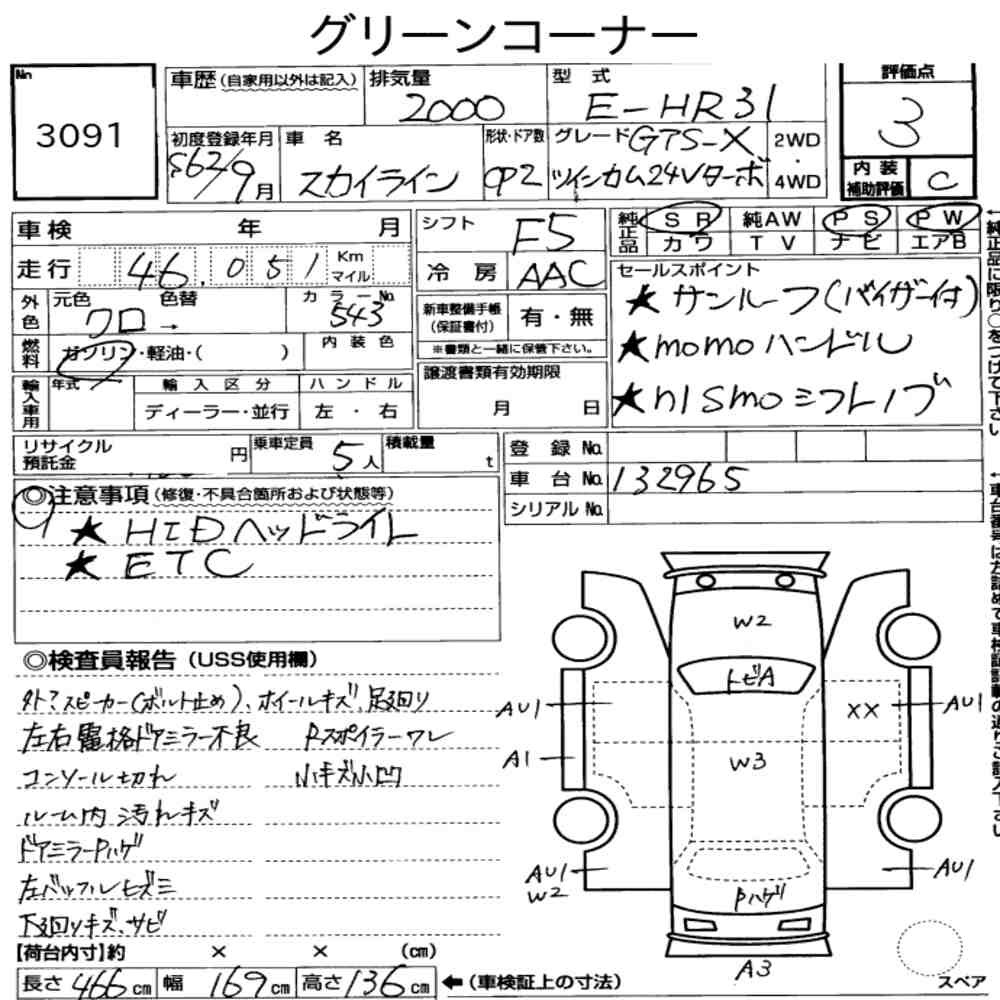 グリーンコーナー
No 3091
車歴(自家用以外は記入)
排気量 2000
型式 E-HR31
評価点 3
初度登録年月 S62/9月
車名 スカイライン
形状・ドア数 CP2
グレード GTS-X ツインカム24Vターボ
2WD・4WD
内装補助評価 C
車検 年 月
シフト F5
純正品 SR 純AW PS PW
カワ TV ナビ エアB
走行 46.051 Km マイル
冷房 AAC
セールスポイント
★サンルーフ(バイザー付)
★momoハンドル
★nismoシフトノブ
外色 元色 クロ → 色替 カラーNo. 543
新車整備手帳(保証書付) 有・無
※書類と一緒に保管下さい。
燃料 ガソリン・軽油・( ) 内装色
譲渡書類有効期限 月 日
輸入車用 年式 輸入区分 ハンドル
ディーラー・並行 左・右
リサイクル預託金 円
乗車定員 5人
積載量 t
登録No.
車台No. 132965
シリアルNo.
◎注意事項(修復・不具合箇所および状態等)
★HIDヘッドライト
★ETC
◎検査員報告(USS使用欄)
外?スピーカー(ボルト止め)、ホイールキズ、足廻り
左右電格ドアミラー不良 Rスポイラーワレ
コンソール切れ 小キズ小凹
ルーム内汚れキズ
ドアミラーPハゲ
左バッフルヒズミ
下廻りキズ、サビ
W2
トビA
AU1
XX
AU1
A1
W3
AU1
W2
Pハゲ
AU1
A3
スペア
【荷台内寸】約 × × (cm)
長さ 466cm 幅 169cm 高さ 136cm ←(車検証上の寸法)
←純正品に限り○をつけて下さい